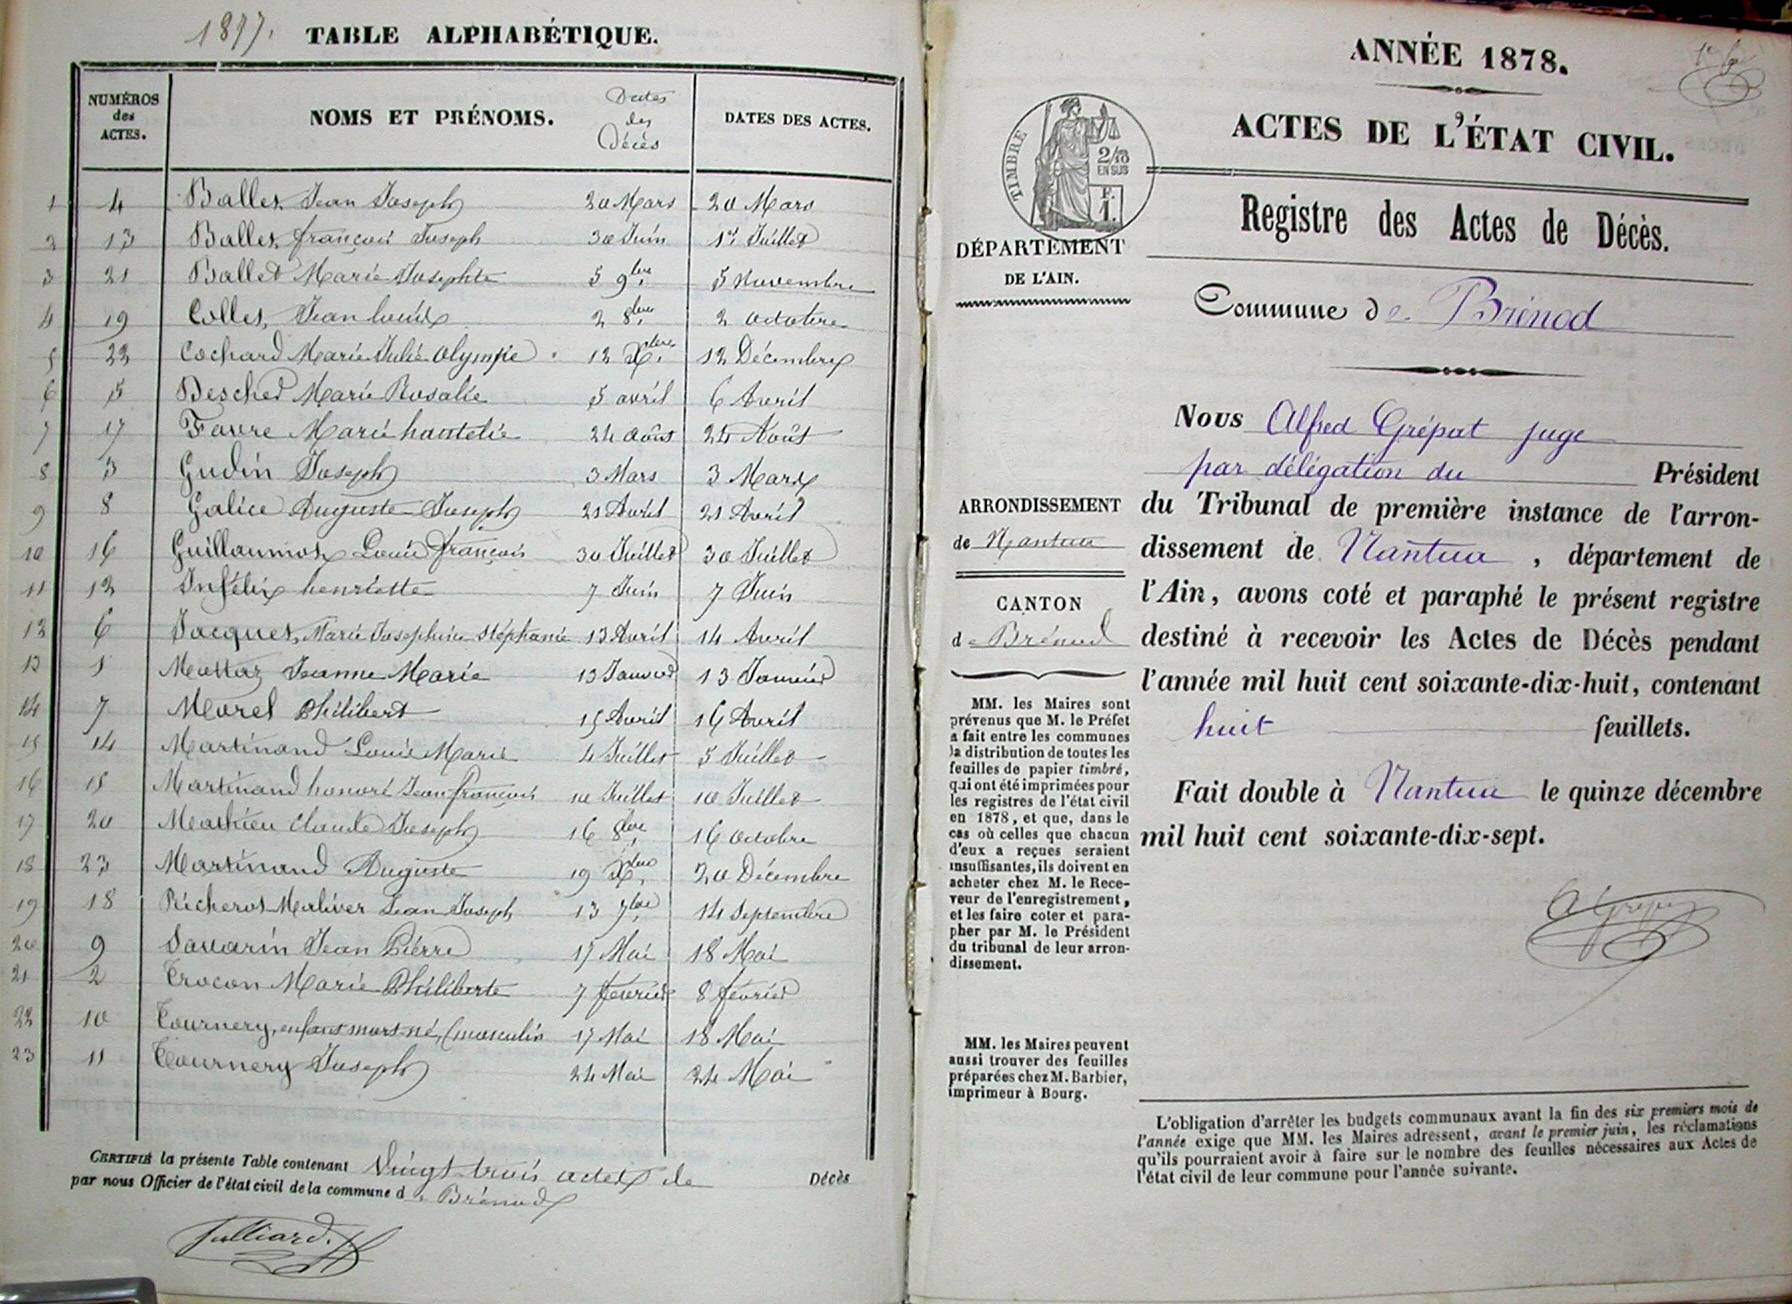 1877. TABLE ALPHABÉTIQUE.
NUMÉROS des ACTES. NOMS ET PRÉNOMS. Dates des Décès DATES DES ACTES.
1 4 Ballet Jean Joseph 20 Mars 20 Mars
2 13 Ballet françois Joseph 30 Juin 1er Juillet
3 21 Ballet Marie Josephte 5 9bre 5 Novembre
4 19 Collet Jean Louis 2 8bre 2 octobre
5 22 Cochard Marie Julie Olympie 12 Xbre 12 Décembre
6 5 Deschet Marie Rosalie 5 avril 6 Avril
7 17 Favre Marie 24 août 24 Août
8 3 Gudin Joseph 3 Mars 3 Mars
9 8 Galice Auguste Joseph 21 Avril 21 Avril
10 16 Guillaumot Louis françois 30 Juillet 30 Juillet
11 12 Infélix henriette 7 Juin 7 Juin
12 6 Jacquet Marie Josephine Stéphanie 13 Avril 14 Avril
13 1 Mattaz Jeanne Marie 13 Janvier 13 Janvier
14 7 Morel Philibert 15 Avril 16 Avril
15 14 Martinand Louis Marie 4 Juillet 5 Juillet
16 15 Martinand honoré Jean françois 10 Juillet 10 Juillet
17 20 Mathieu Claude Joseph 16 8bre 16 Octobre
18 23 Martinand Auguste 19 Xbre 20 Décembre
19 18 Richerot Maliver Jean Joseph 13 7bre 14 Septembre
20 9 Savarin Jean Pierre 17 Mai 18 Mai
21 2 Trocon Marie Philiberte 7 février 8 février
22 10 Tournery, enfant mort-né, (masculin 17 Mai 18 Mai
23 11 Tournery Joseph 24 Mai 24 Mai
CERTIFIÉ la présente Table contenant Vingt trois actes de Décès
par nous Officier de l'état civil de la commune de Brénod
Julliard
ANNÉE 1878.
ACTES DE L'ÉTAT CIVIL.
TIMBRE
2/10
EN SUS
F.
1.
DÉPARTEMENT
DE L'AIN.
Registre des Actes de Décès.
Commune de Brénod
ARRONDISSEMENT
de Nantua
CANTON
de Brénod
MM. les Maires sont
prévenus que M. le Préfet
a fait entre les communes
la distribution de toutes les
feuilles de papier timbré,
qui ont été imprimées pour
les registres de l'état civil
en 1878, et que, dans le
cas où celles que chacun
d'eux a reçues seraient
insuffisantes, ils doivent en
acheter chez M. le Rece-
veur de l'enregistrement,
et les faire coter et para-
pher par M. le Président
du tribunal de leur arron-
dissement.
MM. les Maires peuvent
aussi trouver des feuilles
préparées chez M. Barbier,
imprimeur à Bourg.
Nous Alfred Grépat juge
par délégation du Président
du Tribunal de première instance de l'arron-
dissement de Nantua, département de
l'Ain, avons coté et paraphé le présent registre
destiné à recevoir les Actes de Décès pendant
l'année mil huit cent soixante-dix-huit, contenant
huit feuillets.
Fait double à Nantua le quinze décembre
mil huit cent soixante-dix-sept.
A Grépat
L'obligation d'arrêter les budgets communaux avant la fin des six premiers mois de
l'année exige que MM. les Maires adressent, avant le premier juin, les réclamations
qu'ils pourraient avoir à faire sur le nombre des feuilles nécessaires aux Actes de
l'état civil de leur commune pour l'année suivante.